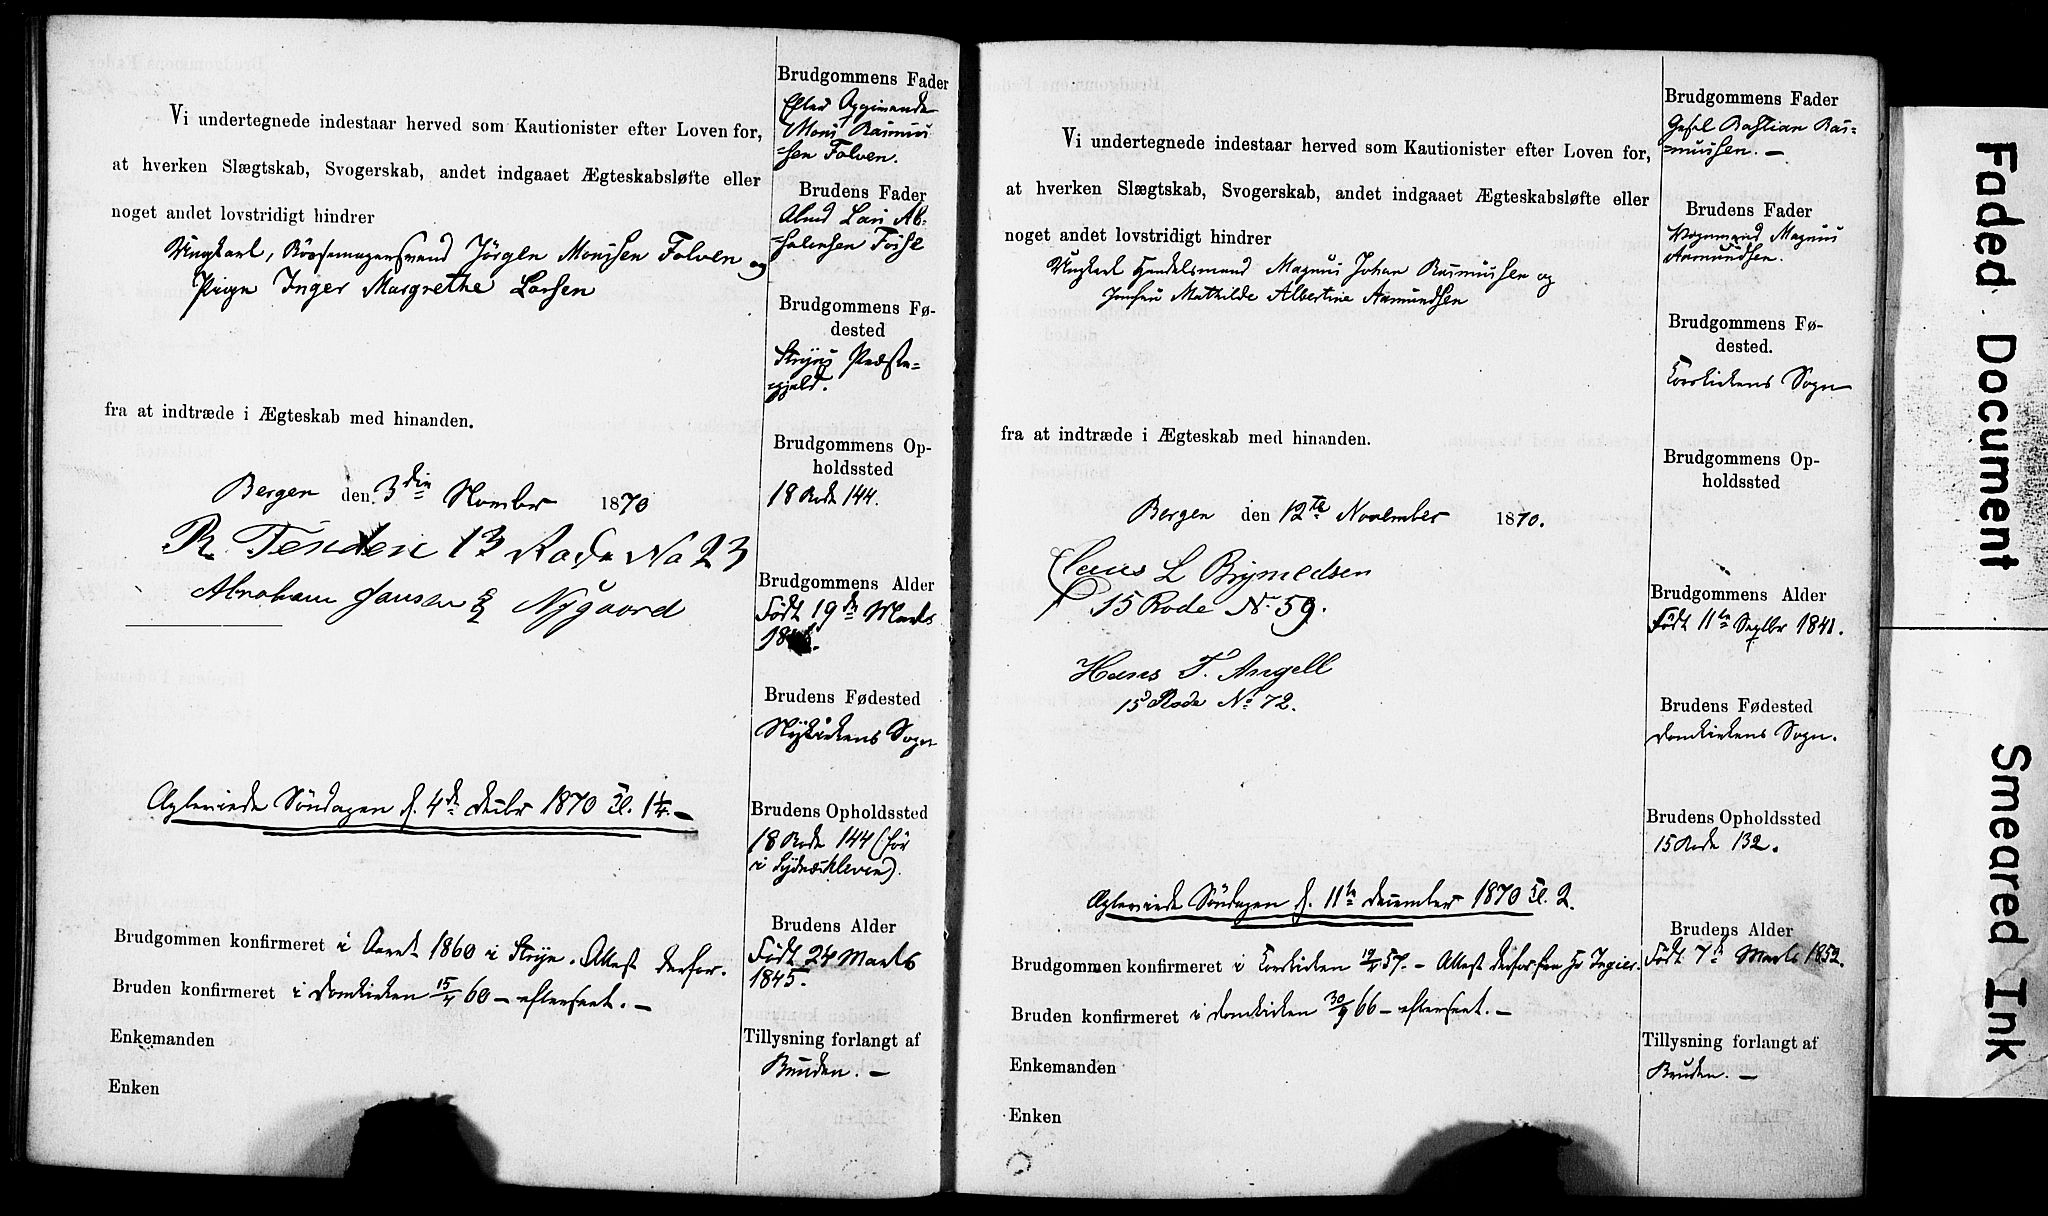 Vi undertegnede indestaar herved som Kautionister efter Loven for,
at hverken Slægtskab, Svogerskab, andet indgaaet Ægteskabsløfte eller
noget andet lovstridigt hindrer
Ungkarl, Bössemagersvend Jörgen Monssen Folven og
Pigen Inger Margrethe Larsen
fra at indtræde i Ægteskab med hinanden.
Bergen den 3die November 1870
R. Tenden 13 Rode No 23
Abraham Jansen Nygaard
Agleviede Söndagen d. 4de Decbr 1870 Kl. 1¼. —
Brudgommen konfirmeret i Aaret 1860 i Stryn. Attest derfor.
Bruden konfirmeret i Domkirken 15/4 60 — efterseet. —
Enkemanden
Enken
Brudgommens Fader
Mons Rasmus=
=sen Folven.
Brudens Fader
Lars Ab=
Brudgommens Fø-
dested
Stryns Præste=
=gjeld.
Brudgommens Op-
holdssted
18 Rode 144.
Brudgommens Alder
Födt 19de Marts
Brudens Fødested
Nykirkens Sogn
Brudens Opholdssted
18 Rode 144 (før
i Sydneskleven).
Brudens Alder
Födt 24 Marts
1845.
Tillysning forlangt af
Bruden. —
Vi undertegnede indestaar herved som Kautionister efter Loven for,
at hverken Slægtskab, Svogerskab, andet indgaaet Ægteskabsløfte eller
noget andet lovstridigt hindrer
Ungkarl Handelsmand Magnus Johan Rasmussen og
Jomfru Mathilde Albertine Aamundsen
fra at indtræde i Ægteskab med hinanden.
Bergen den 12te November 1870.
Claus L Brynildsen
15 Rode No. 59.
Hans T. Angell
15 Rode No 72.
Agleviede Söndagen d. 11te December 1870 Kl. 2.
Brudgommen konfirmeret i Korskirken 57. — Attest derfor fra
Bruden konfirmeret i Domkirken 30/9 66 — efterseet. —
Enkemanden
Enken
Brudgommens Fader
Bastian Ras=
=mussen. —
Brudens Fader
Vognmand Magnus
Aamundsen.
Brudgommens Fø-
dested.
Korskirkens Sogn
Brudgommens Op-
holdssted
Brudgommens Alder
Födt 11te Septbr 1841.
Brudens Fødested
Domkirkens Sogn.
Brudens Opholdssted
15 Rode 132.
Brudens Alder
Födt 7de Marts 1852.
Tillysning forlangt af
Bruden. —
Faded Document
Smeared Ink